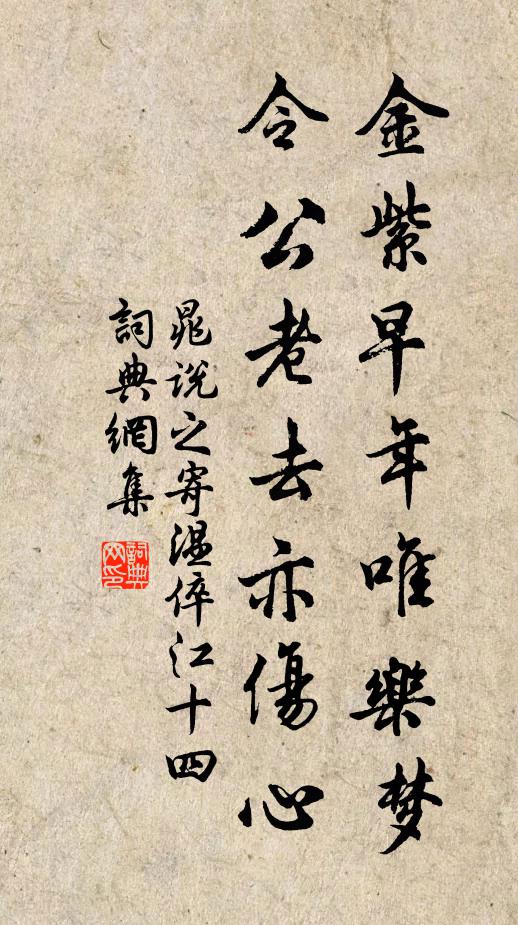 金紫早年唯樂梦
令公老去亦傷心
晁說之寄温倅江十四
詞典網集
詞典网印